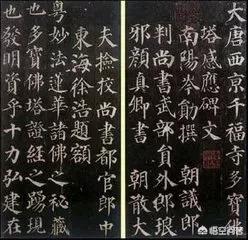 大唐西京千福寺多寶佛
塔感應碑文
南陽岑勛撰 朝議郎
判尚書武部員外郎琅
邪顏真卿書 朝散大
夫檢校尚書都官郎中
東海徐浩題額
粵妙法蓮華諸佛之秘藏
也多寶佛塔證經之踴現
也發明資乎十力弘建在
悟空问答